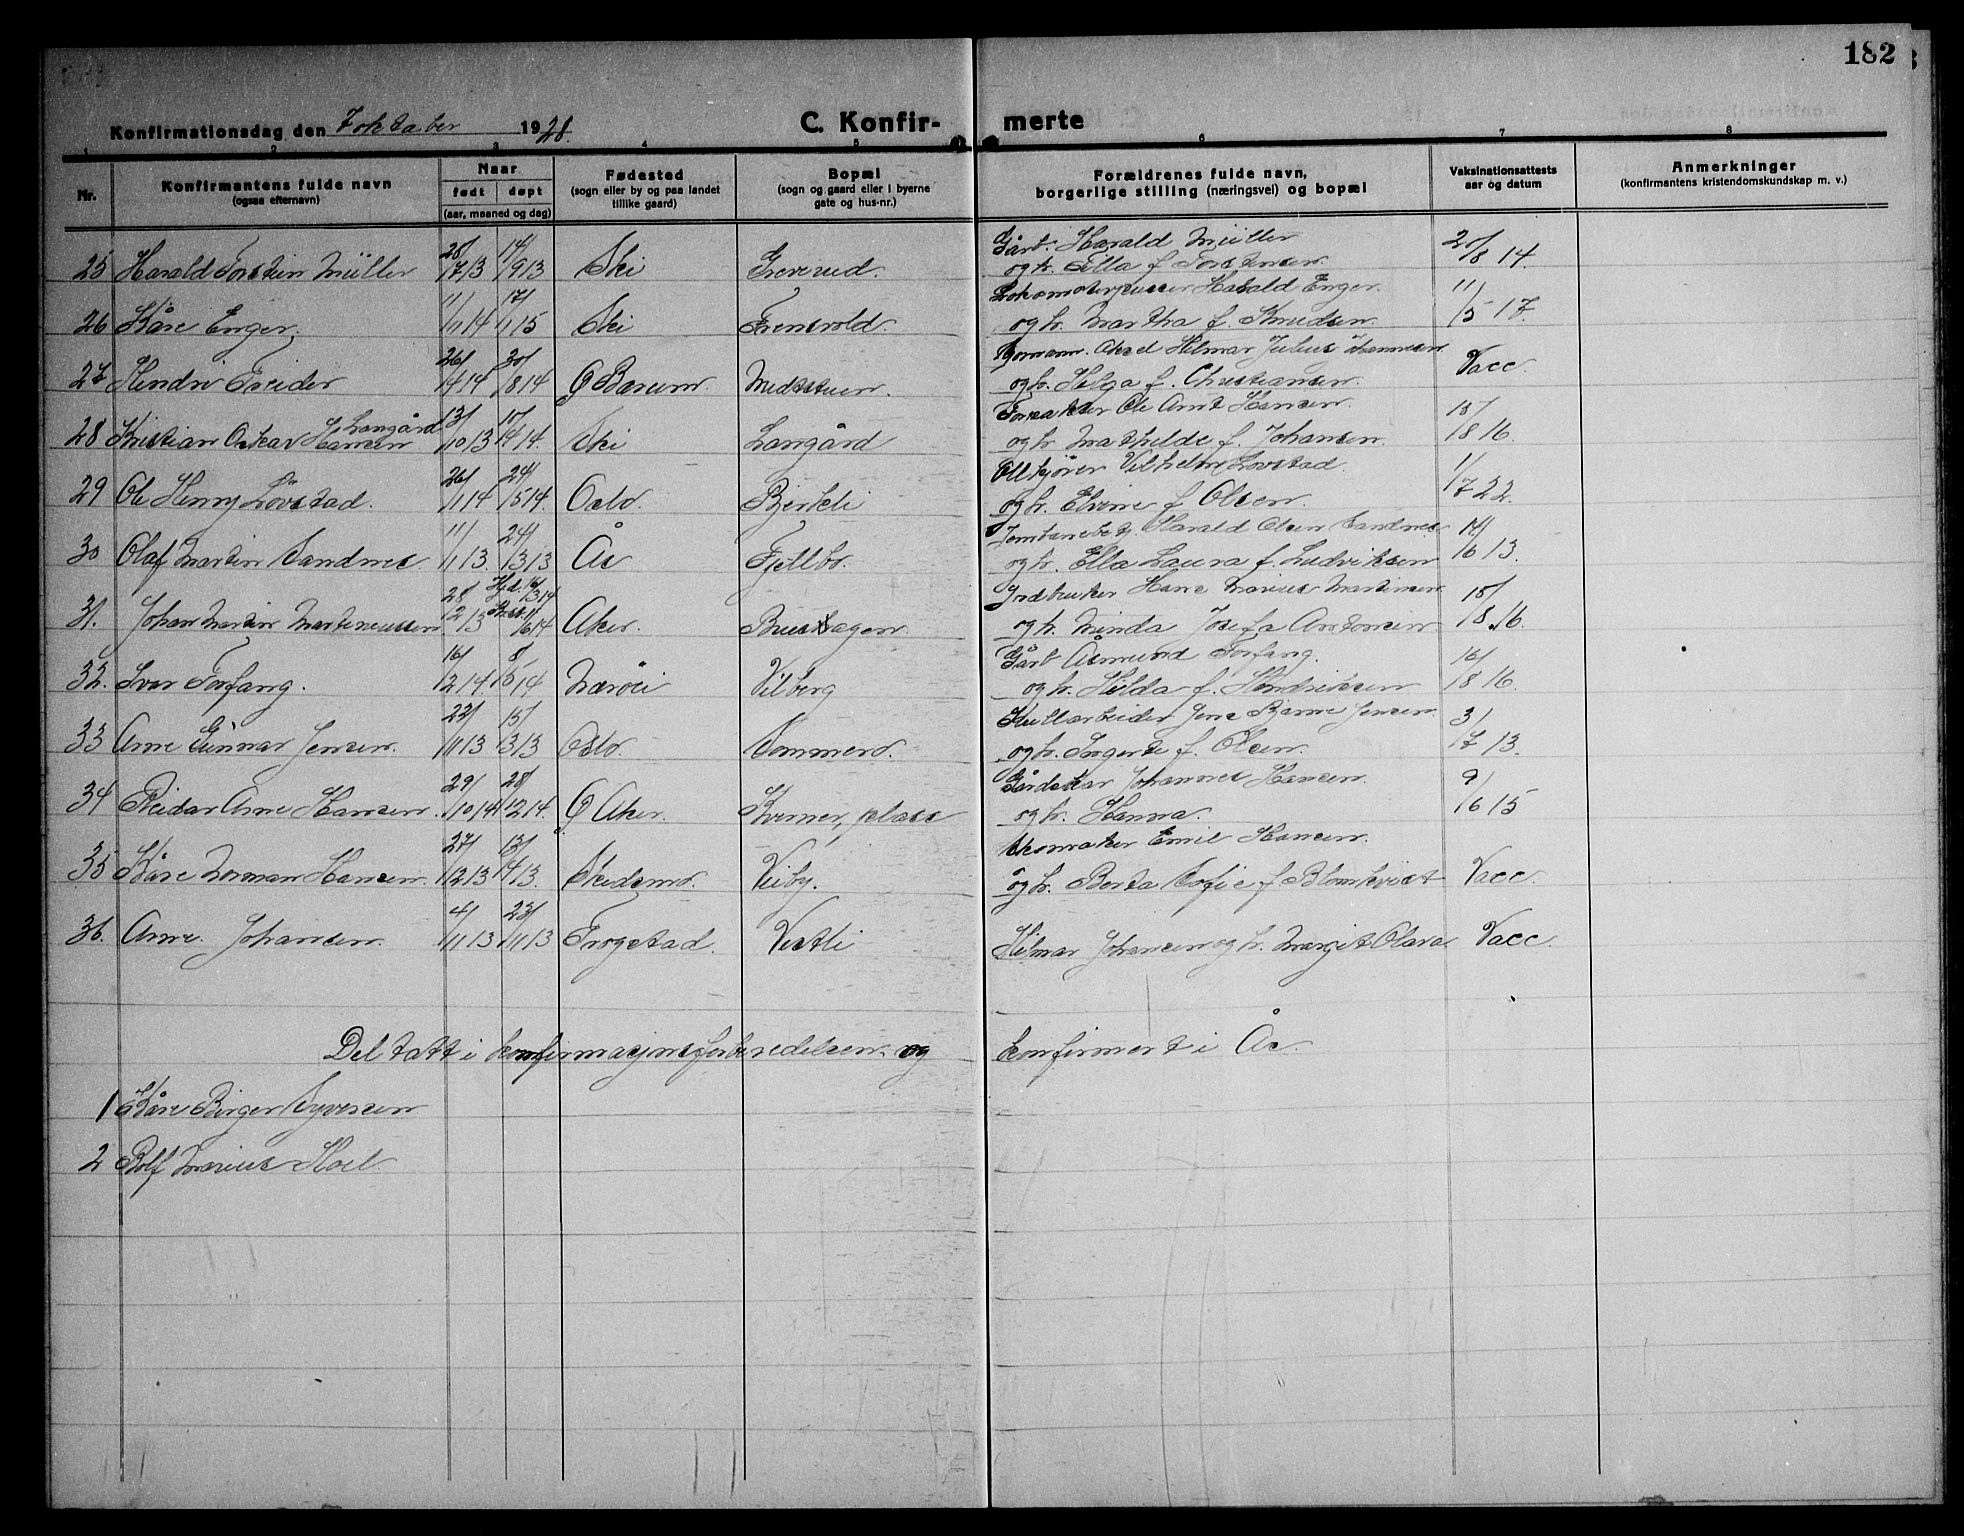 182
Konfirmationsdag den 7 oktober 1928.
C. Konfir- merte
1 2 3 4 5 6 7 8
Nr.
Konfirmantens fulde navn
(ogsaa efternavn)
Naar
født døpt
(aar, maaned og dag)
Fødested
(sogn eller by og paa landet
tillike gaard)
Bopæl
(sogn og gaard eller i byerne
gate og hus-nr.)
Forældrenes fulde navn,
borgerlige stilling (næringsvei) og bopæl
Vaksinationsattests
aar og datum
Anmerkninger
(konfirmantens kristendomskundskap m. v.)
25 Harald Torstein Müller 28/7 13 14/9 13 Ski Greverud. Gårb. Harald Müller
og h. Ella f. Torstensen 20/8 14.
26 Kåre Enger. 11/11 14 17/1 15 Ski Finsrold. Harald Enger.
og h. Martha f. Knudsen. 11/5 17.
27 Hindri Freider 26/4 14 30/8 14 Ø Bærum Midtstuen. Aksel Hilmar Julius
og h. Helga f. Christiansen. Vacc
28 Kristian Oskar Hansen Langård 13/10 13 10/4 14. Ski Langård Ole Arnt Hansen.
og h. Mathilde f. Johansen. 18/8 16.
29 Ole Henry Lövstad. 26/1 14 24/5 14. Oslo. Bjerkeli Vilhelm Lövstad.
og h. Elvine f. Olsen. 1/7 22.
30 Olaf Martin Sandnes. 11/1 13. 24/3 13 Ås Fjellbo. Harald Olsen Sandnes
og h. Ella Laura f. Ludviksen 14/6 13.
31. Johan Martin Martineussen 28/12 13 Hjd. 16/3 14 11/6 14 Aker. Jrdbruker Hans Marius Martinsen
og h. Minda Josefa Antonsen. 18/8 16.
32. Ivar Forfang. 16/2 14. 8/5 14 Nærøi Vilberg Gårb Åsmund Forfang.
og h. Hilda f. Hendriksen 16/8 16.
33 Arne Gunnar Jensen. 23/11 13 Oslo. Sommero. Jens Bjarne Jensen.
og h. Ingerte f. Olsen. 3/7 13.
34 Reidar Arne Hansen. 29/10 14 28/12 14. Ø Aker. Kverner, plass Gårdskar Johannes Hansen.
og h. Hanna. 9/6 15
35 Kåre Norman Hansen. 27/12 13 13/4 13. Skedsmo. Veiby. Skomaker Emil Hansen.
og h. Berta Sofie f Blomkvist Vacc.
36. Arne. Johansen. 4/11 13 23/11 13 Trogstad. Vestli Hilmar Johansen og h. Margit Olava. Vacc.
Deltatt i konfirmasjonsforberedelsen og konfirmert i Ås.
1 Kåre Birger Syversen
2 Rolf Marius Hoel